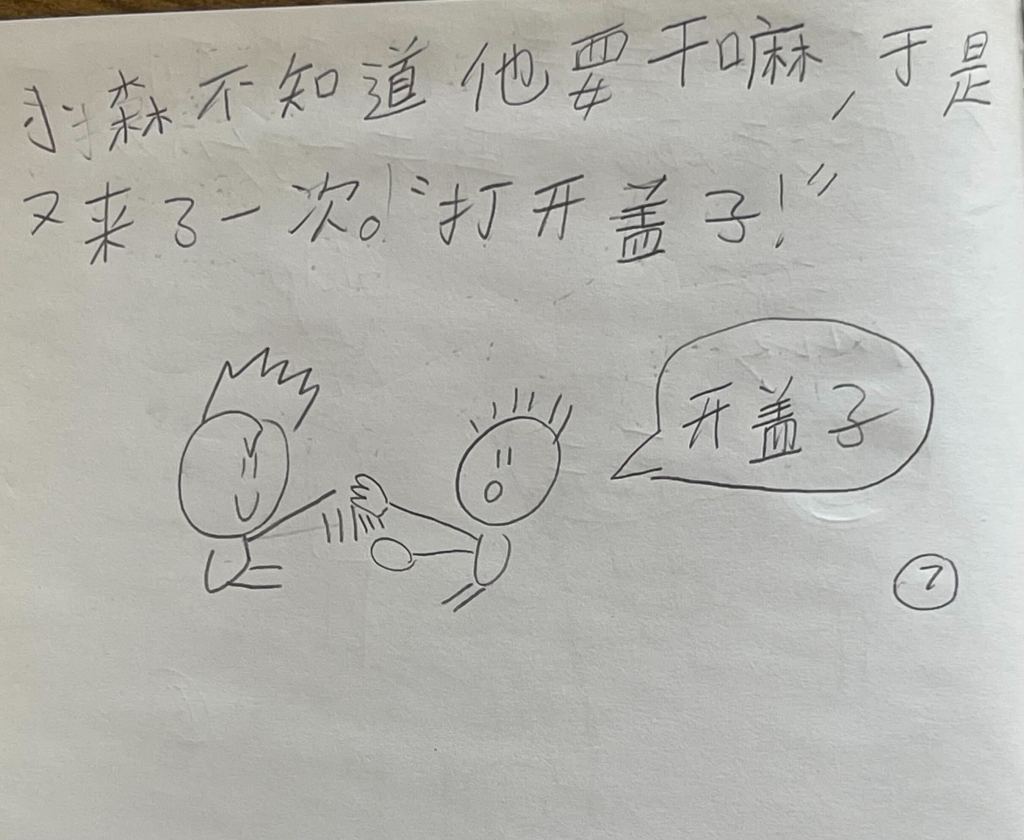 小森不知道他要干嘛,于是
又来了一次。“打开盖子!”
开盖子
7